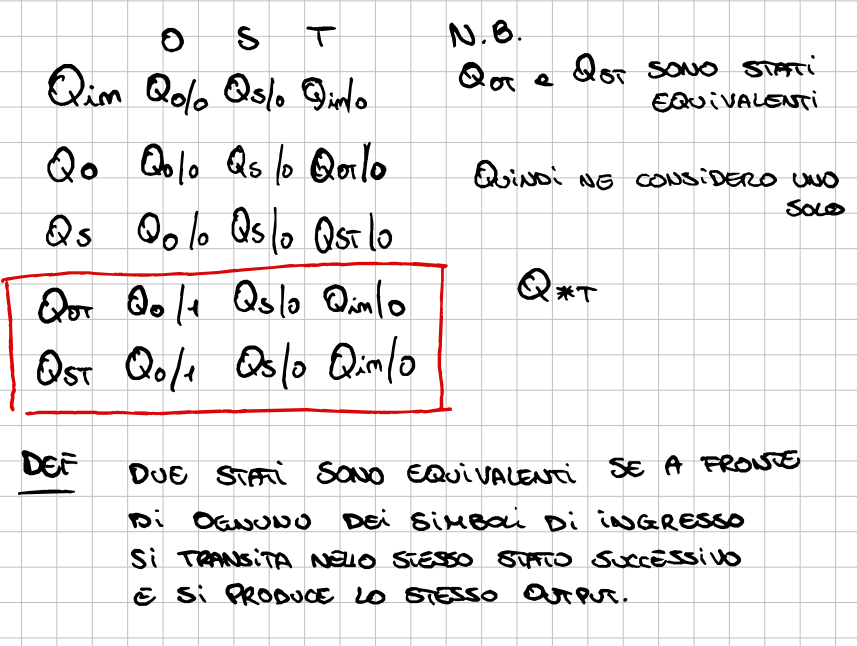 O S T
Qin Qo/0 Qs/0 Qin/0
Qo Qo/0 Qs/0 QOT/0
Qs Qo/0 Qs/0 QST/0
QOT Qo/1 Qs/0 Qin/0
QST Qo/1 Qs/0 Qin/0
N.B.
QOT e QST SONO STATI
EQUIVALENTI
QUINDI NE CONSIDERO UNO
SOLO
Q*T
DEF DUE STATI SONO EQUIVALENTI SE A FRONTE
DI OGNUNO DEI SIMBOLI DI INGRESSO
SI TRANSITA NELLO STESSO STATO SUCCESSIVO
E SI PRODUCE LO STESSO OUTPUT.